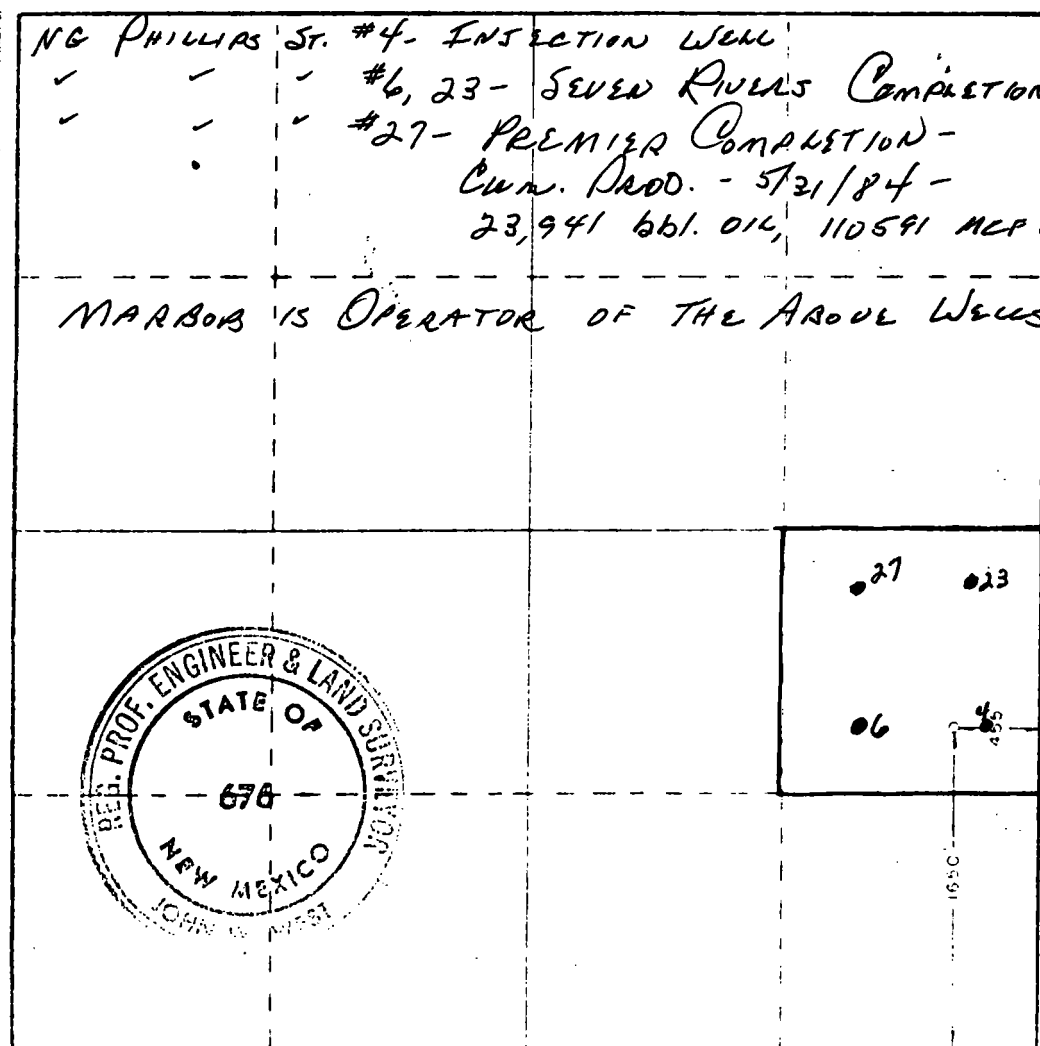 NG PHILLIPS ST. #4- INJECTION WELL
✓ ✓ ✓ #6, 23- SEVEN RIVERS COMPLETION
✓ ✓ ✓ #27- PREMIER COMPLETION-
CUM. PROD. - 5/31/84 -
23,941 bbl. OIL, 110591 MCF
MARBOB IS OPERATOR OF THE ABOVE WELLS
27
23
6
4
455
1650'
REG. PROF. ENGINEER & LAND SURVEYOR
STATE OF
676
NEW MEXICO
JOHN W. WEST